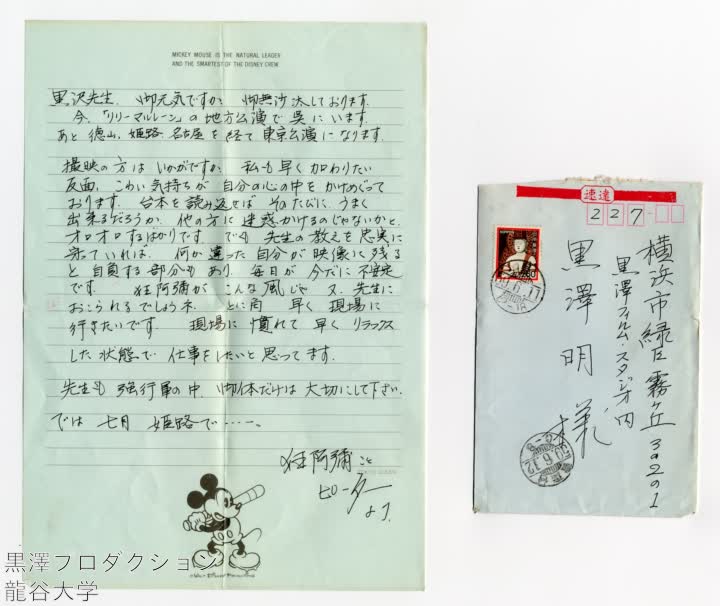 MICKEY MOUSE IS THE NATURAL LEADER
AND THE SMARTEST OF THE DISNEY CREW
黒沢先生、御元気ですか、御無沙汰しております。
今、「リリーマルレーン」の地方公演で呉にいます。
あと徳山、姫路、名古屋を経て東京公演になります。
撮映の方はいかがですか、私も早く加わりたい
反面、こわい気持ちが自分の心の中をかけめぐって
おります。台本を読み返せばそのたびに、うまく
出来るだろうか、他の方に迷惑かけるのじゃないかと、
オロオロするばかりです。でも先生の教えを忠実に
守っていれば、何か違った自分が映像に残る
と自負する部分もあり、毎日が今だに不安定
です。狂阿彌がこんな風じゃ又、先生に
おこられるでしょうネ、とに角早く現場に
行きたいです。現場に慣れて早くリラックス
した状態で仕事をしたいと思ってます。
先生も強行軍の中、御体だけは大切にして下さい。
では七月姫路で‥‥‥。
狂阿彌こと
ピーター
より
© WALT DISNEY PRODUCTIONS
速達
227
横浜市緑区霧ヶ丘3の2の1
黒澤フィルム・スタジオ内
黒澤明様
黒澤プロダクション
龍谷大学